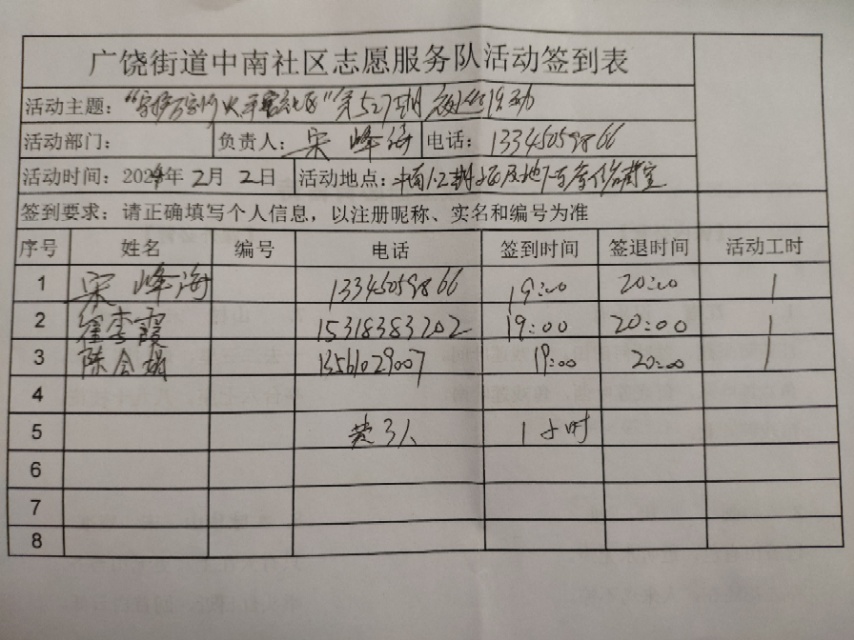 广饶街道中南社区志愿服务队活动签到表
活动主题： 第527期 活动
活动部门： 负责人：宋峰海 电话：13345059866
活动时间：2024年2月2日 活动地点：中南1.2期
签到要求：请正确填写个人信息，以注册昵称、实名和编号为准
序号 姓名 编号 电话 签到时间 签退时间 活动工时
1 宋峰海 13345059866 19:00 20:00 1
2 霞 15318383202 19:00 20:00 1
3 陈会娟 13561029007 19:00 20:00 1
4
5 共3人 1小时
6
7
8